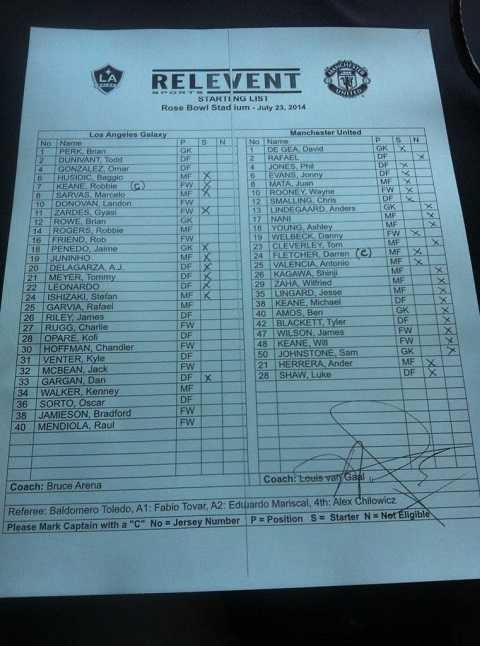 LA
GALAXY
RELEVENT
SPORTS
MANCHESTER
UNITED
STARTING LIST
Rose Bowl Stadium - July 23, 2014
Los Angeles Galaxy
No Name P S N
1 PERK, Brian GK
2 DUNIVANT, Todd DF
4 GONZALEZ, Omar DF
6 HUSIDIC, Baggio MF X
7 KEANE, Robbie (C) FW X
8 SARVAS, Marcelo MF X
10 DONOVAN, Landon FW
11 ZARDES, Gyasi FW X
12 ROWE, Brian GK
14 ROGERS, Robbie MF
16 FRIEND, Rob FW
18 PENEDO, Jaime GK X
19 JUNINHO MF X
20 DELAGARZA, A.J. DF X
21 MEYER, Tommy DF X
22 LEONARDO DF X
24 ISHIZAKI, Stefan MF X
25 GARVIA, Rafael MF
26 RILEY, James DF
27 RUGG, Charlie FW
28 OPARE, Kofi DF
30 HOFFMAN, Chandler FW
31 VENTER, Kyle DF
32 MCBEAN, Jack FW
33 GARGAN, Dan DF X
34 WALKER, Kenney MF
36 SORTO, Oscar DF
38 JAMIESON, Bradford FW
40 MENDIOLA, Raul FW
Coach: Bruce Arena
Manchester United
No Name P S N
1 DE GEA, David GK X
2 RAFAEL DF X
4 JONES, Phil DF X
6 EVANS, Jonny DF X
8 MATA, Juan MF X
10 ROONEY, Wayne FW X
12 SMALLING, Chris DF X
13 LINDEGAARD, Anders GK X
17 NANI MF X
18 YOUNG, Ashley MF X
19 WELBECK, Danny FW X
23 CLEVERLEY, Tom MF X
24 FLETCHER, Darren (C) MF X
25 VALENCIA, Antonio MF X
26 KAGAWA, Shinji MF X
29 ZAHA, Wilfried MF X
35 LINGARD, Jesse MF X
38 KEANE, Michael DF X
40 AMOS, Ben GK X
42 BLACKETT, Tyler DF X
47 WILSON, James FW X
48 KEANE, Will FW X
50 JOHNSTONE, Sam GK X
21 HERRERA, Ander MF X
28 SHAW, Luke DF X
Coach: Louis van Gaal
Referee: Baldomero Toledo, A1: Fabio Tovar, A2: Eduardo Mariscal, 4th: Alex Chilowicz
Please Mark Captain with a "C" No = Jersey Number P = Position S = Starter N = Not Eligible